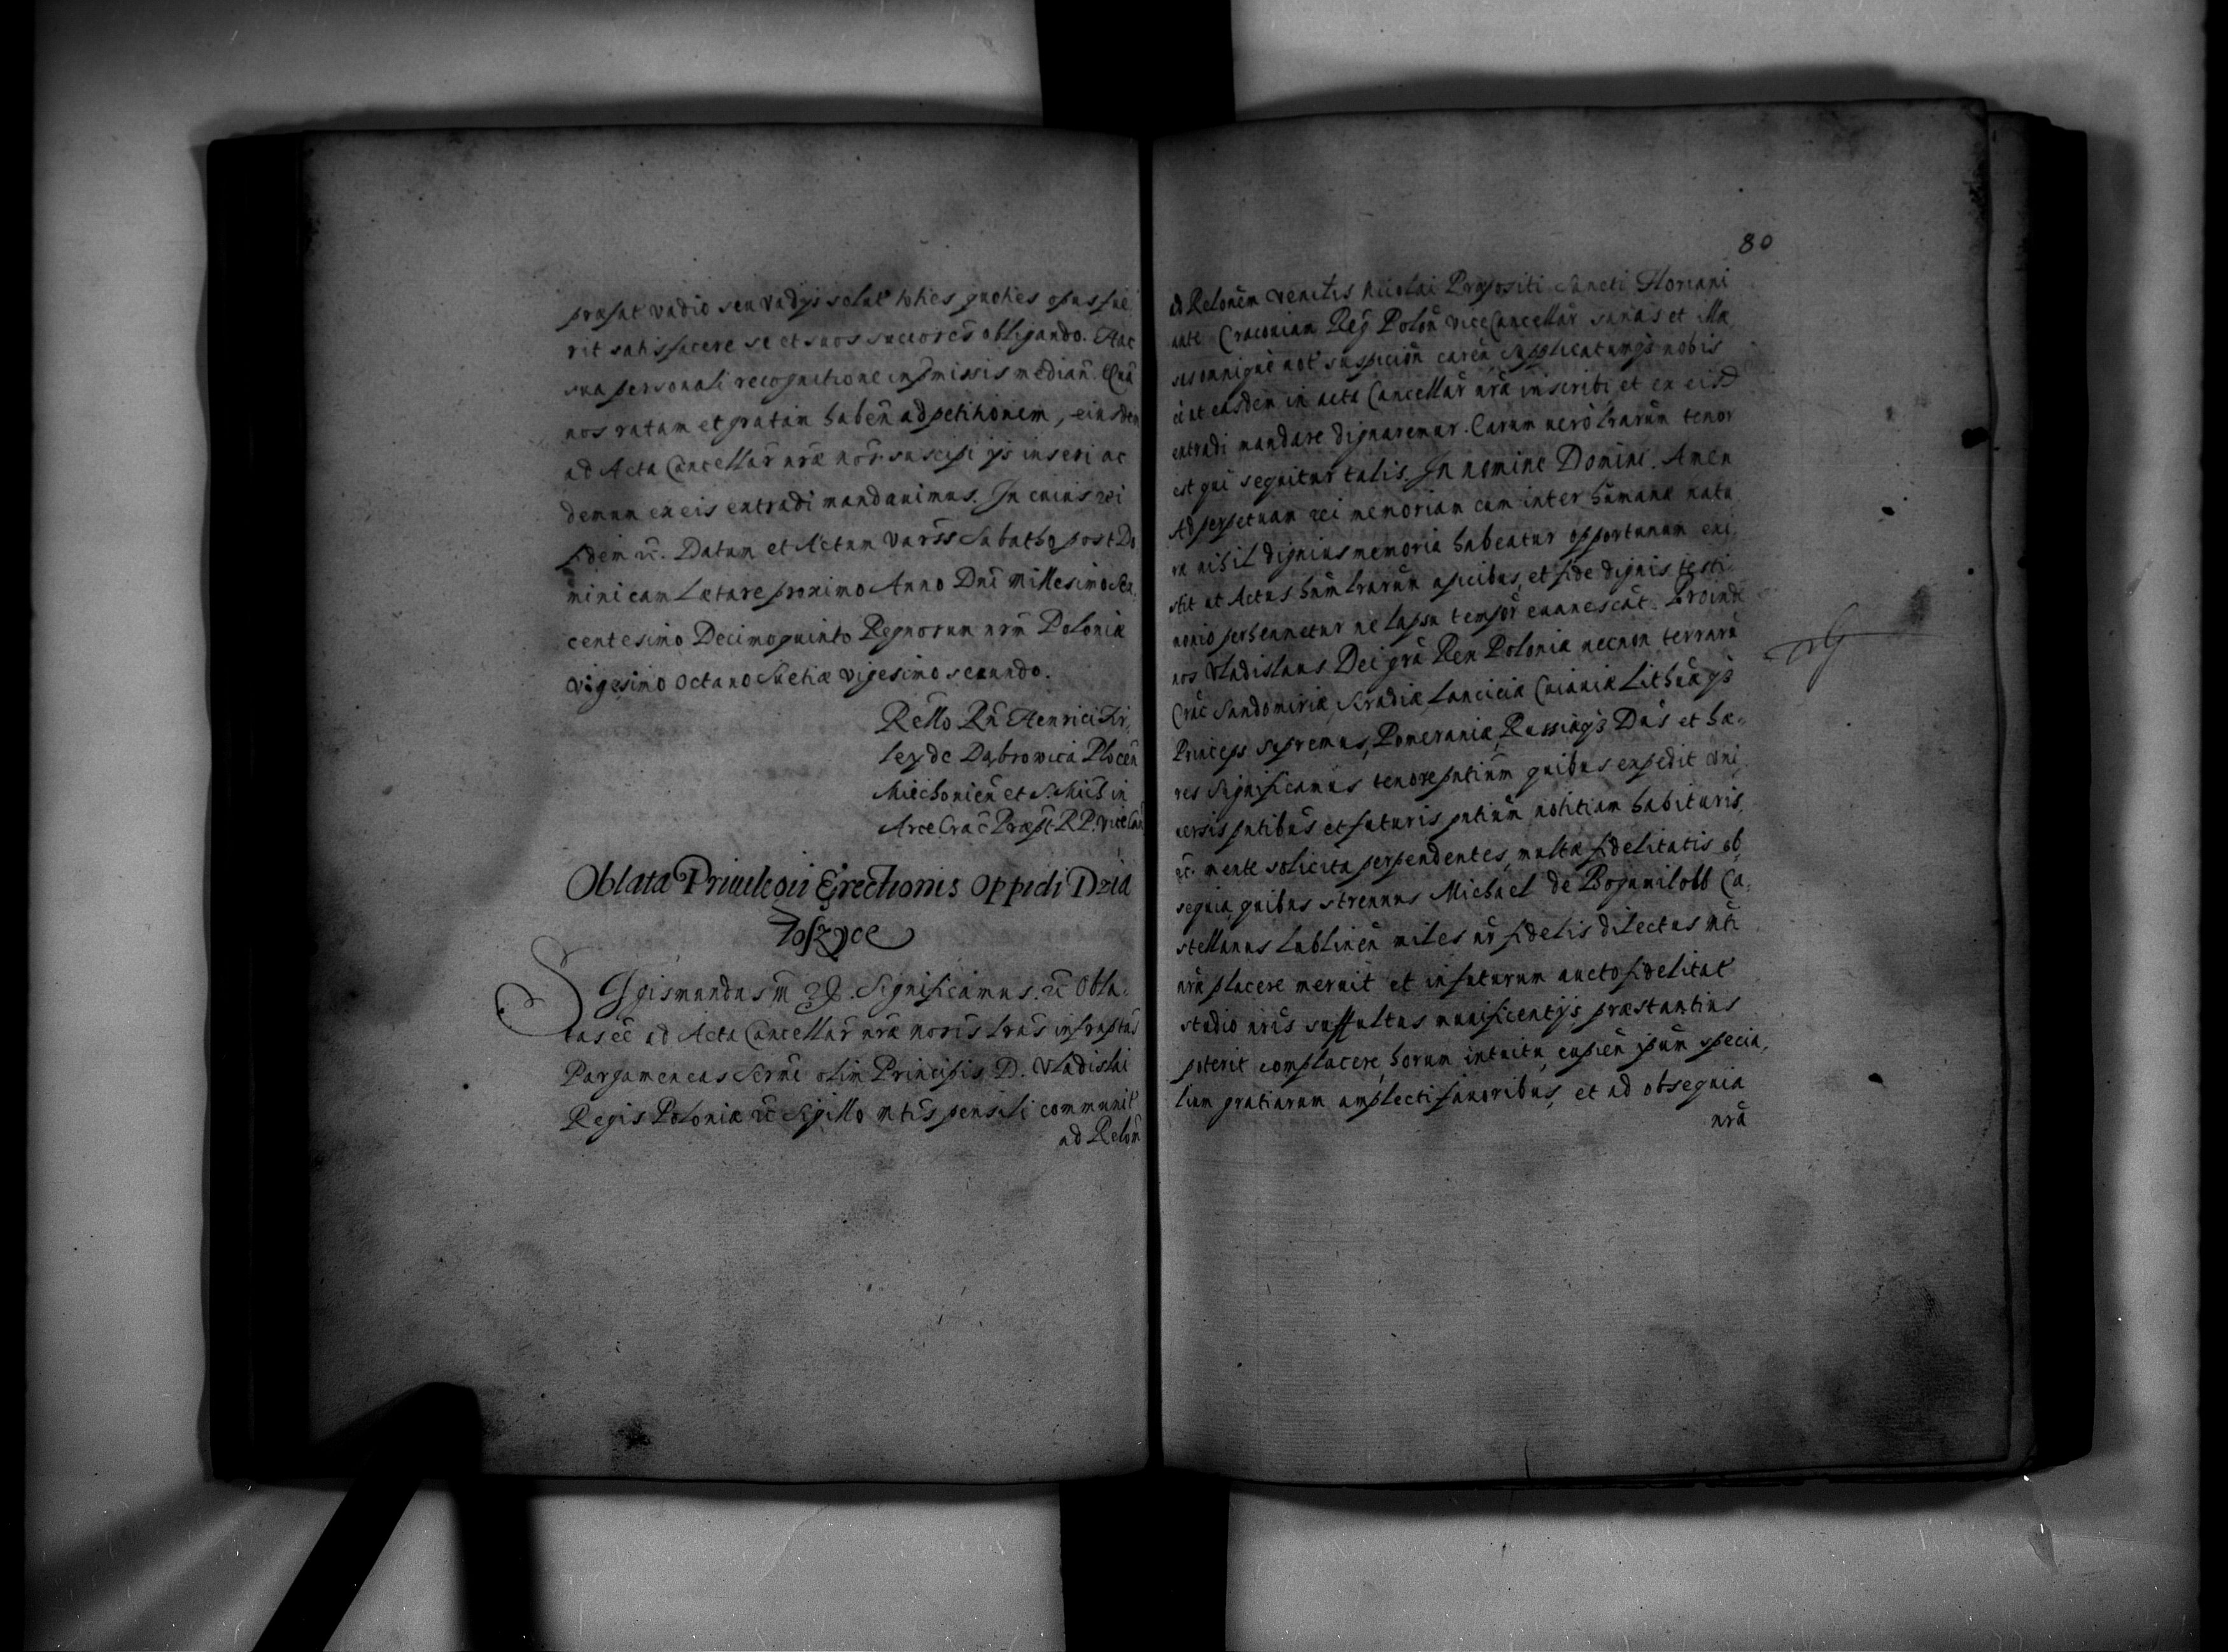 præfat vadio seu vadijs solut toties quoties opus fue
rit satisfacere se et suos succores obligando. Hac
sua personali recognitione inpmissis median. Quā
nos ratam et gratam haben̄ ad petitionem, eiusdem
ad Acta Cancellar̄ nræ nōr suscipi ijs inseri ac
demum ex eis extradi mandauimus. In cuius rei
fidem ꝛc. Datum et Actum Varss Sabatho post Do
minicam Lætare proximo Anno Dnī Millesimo Sex,
centesimo Decimoquinto Regnorum nrm̄ Poloniæ
vigesimo octauo Suetiæ vigesimo secundo.
Rello Rn̄ Henrici Fir,
ley de Dąbrowica Plocen̄
Miechouien̄ et S. Mich in
Arce Crac̄ Præpt. R.P. Vice Can
Oblata Priuilegii Erectionis Oppidi Dzia
łoszyce
Sigismundus m̄ Significamus. ꝛc Obla,
tas eē ad Acta Cancellar̄ nræ noris lrās infraptas
Pargameneas Serm̄i olim Principis D. Vladislai
Regis Poloniæ ꝛc Sigillo mtīs pensili communit
ad Relom̄
80
ad Relonēm Venilis Nicolai Præpositi Sancti Floriani
ante Craconiam Regī Polon̄ ViceCancellar̄ sanas et illæ
sas omnique not suspicion̄ caren̄, supplicatumqȝ nobis
ēe ut easdem in acta Cancellar̄ nrā inscribi et ex eisd
extradi mandare dignaremur. Earum uero lrarum̄ tenor
est qui sequitur talis. In nomine Domini. Amen
Ad perpetuam rei memoriam cum inter humana natu
ra nihil dignius memoria habeatur opportunum exi,
stit ut Actus hum̄ lrarum̄ apicibus, et fide dignis testi,
monio perhennetur ne lapsu tempor̄ euanescat. Proinde
nos Vladislaus Dei grā Rex Poloniæ necnon terrarū
Crac̄ Sandomiriæ, Siradiæ, Lanciciæ Cuiauiæ Lithuāqȝ
Princeps Supremus, Pomeraniæ, Russiaqȝ Dn̄s et hæ,
res Significamus tenore pntium̄ quibus expedit vni
uersis pntibus et futuris pntium̄ notitiam habituris,
ꝛc. mente solicita perpendentes, multæ fidelitatis ob,
sequia, quibus strenuus Michael de Bogumilobb Ca,
stellanus Lublinen̄ miles nr̄ fidelis dilectus mti
nrā placere meruit et in futurum aucto fidelitat
studio nrīs suffultus munificentijs præstantius
poterit complacere, horum intuitu, cupien̄ ipum̄ specia,
lium gratiarum amplecti fauoribus, et ad obsequia
nrā